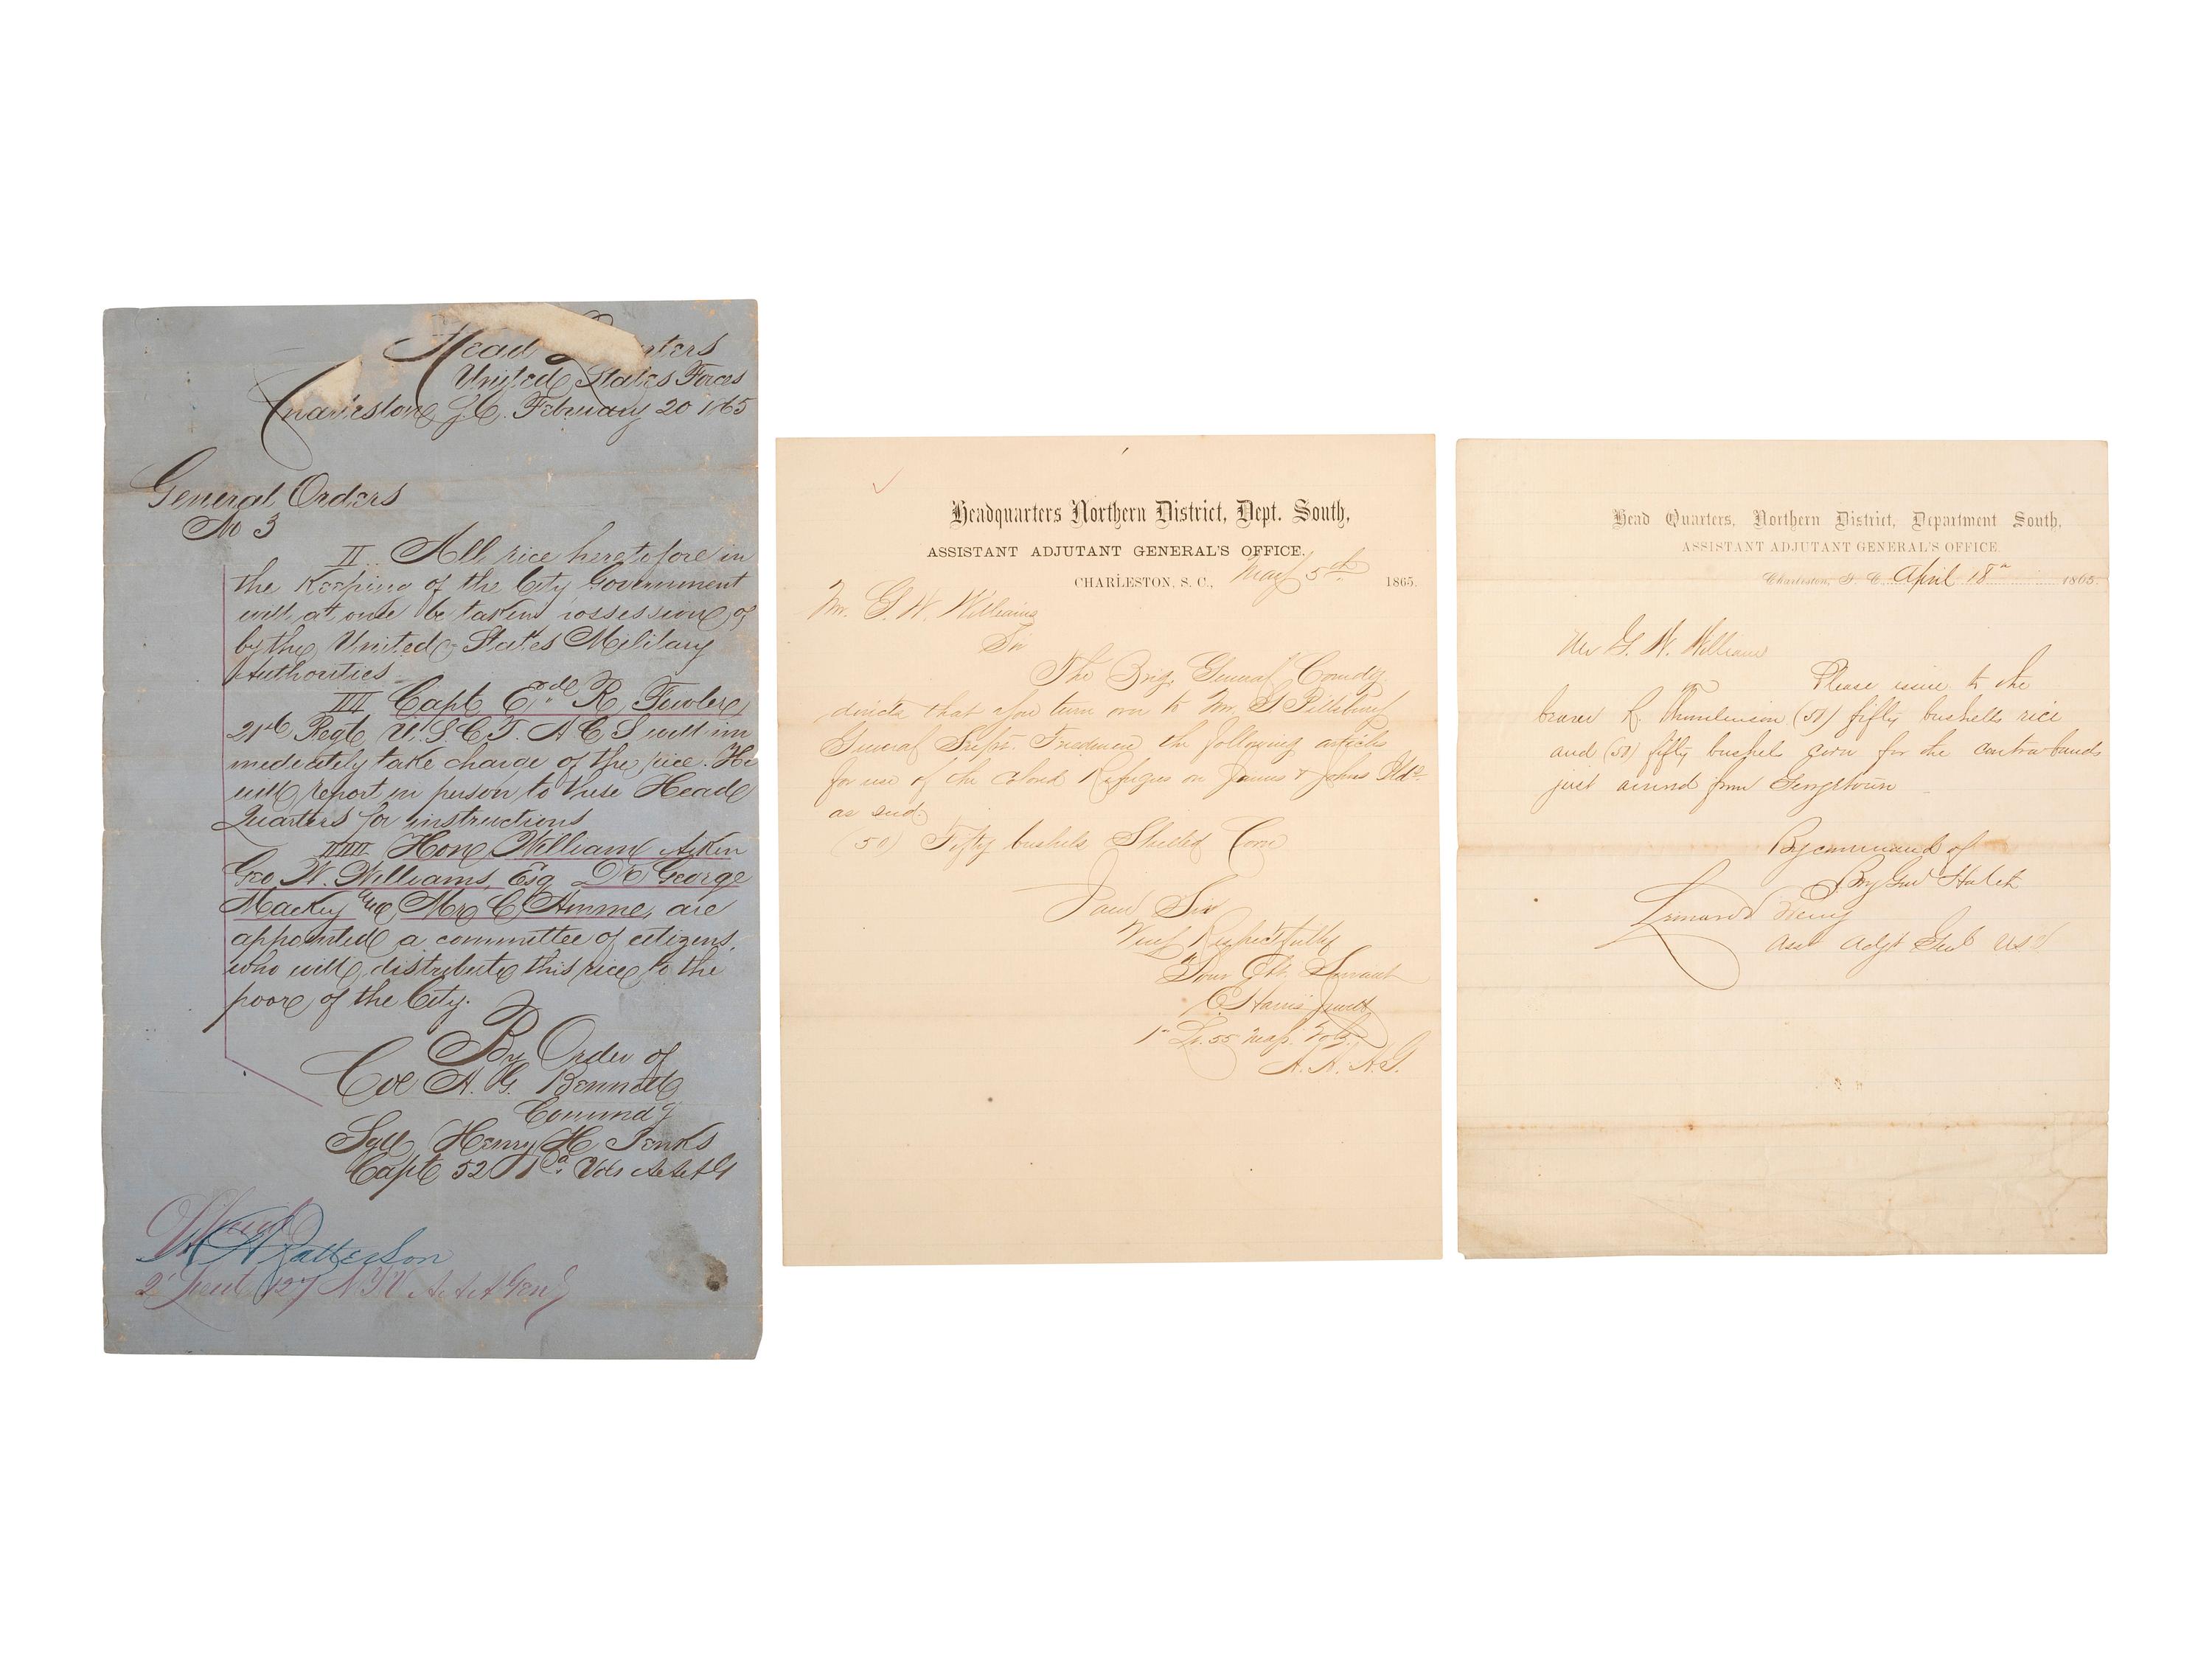 Head
United States Forces
Charleston S.C. February 20 1865
General Orders
No 3
II All rice heretofore in
the Keeping of the City Government
will at once be taken possession of
by the United States Military
Authorities
III Capt R. Fowler
21st Regt U.S.C.T. A C S will im
mediately take charge of the rice. He
will report in person to these Head
Quarters for instructions
IIII Hon William Aiken
Geo W. Williams, Esq Dr George
Mackey and Mr C Amme, are
appointed a committee of citizens,
who will distribute this rice to the
poor of the City.
By Order of
Col A. G. Bennett
Commdg
Sgd Henry H Jenks
Capt 52 Pa. Vols A A A G
Patterson
2d Lieut 127 N Y V A A A Genl
Headquarters Northern District, Dept. South,
ASSISTANT ADJUTANT GENERAL'S OFFICE.
CHARLESTON, S. C., May 5th 1865.
Mr. G. W. Williams
Sir
The Brig. General Comdg.
directs that you turn over to Mr. G Pillsbury
General Supt. Freedmen the following article
for use of the Colored Refugees on James & Johns Ilds
(50) Fifty bushels Shelled Corn
I am Sir
Very Respectfully
Your Obt. Servant
C. Harris Jewett
1st Lt. 55 Mass. Vols.
A. A. A. G.
Head Quarters, Northern District, Department South,
ASSISTANT ADJUTANT GENERAL'S OFFICE.
Charleston, S. C. April 18th 1865
Mr G. W. Williams
Please issue to the
bearer R. Thomlinson (50) fifty bushells rice
and (50) fifty bushels corn for the contrabands
just arrived from Georgetown
By command of
Brig Genl Hatch
Leonard Perry
Asst Adjt Genl USV